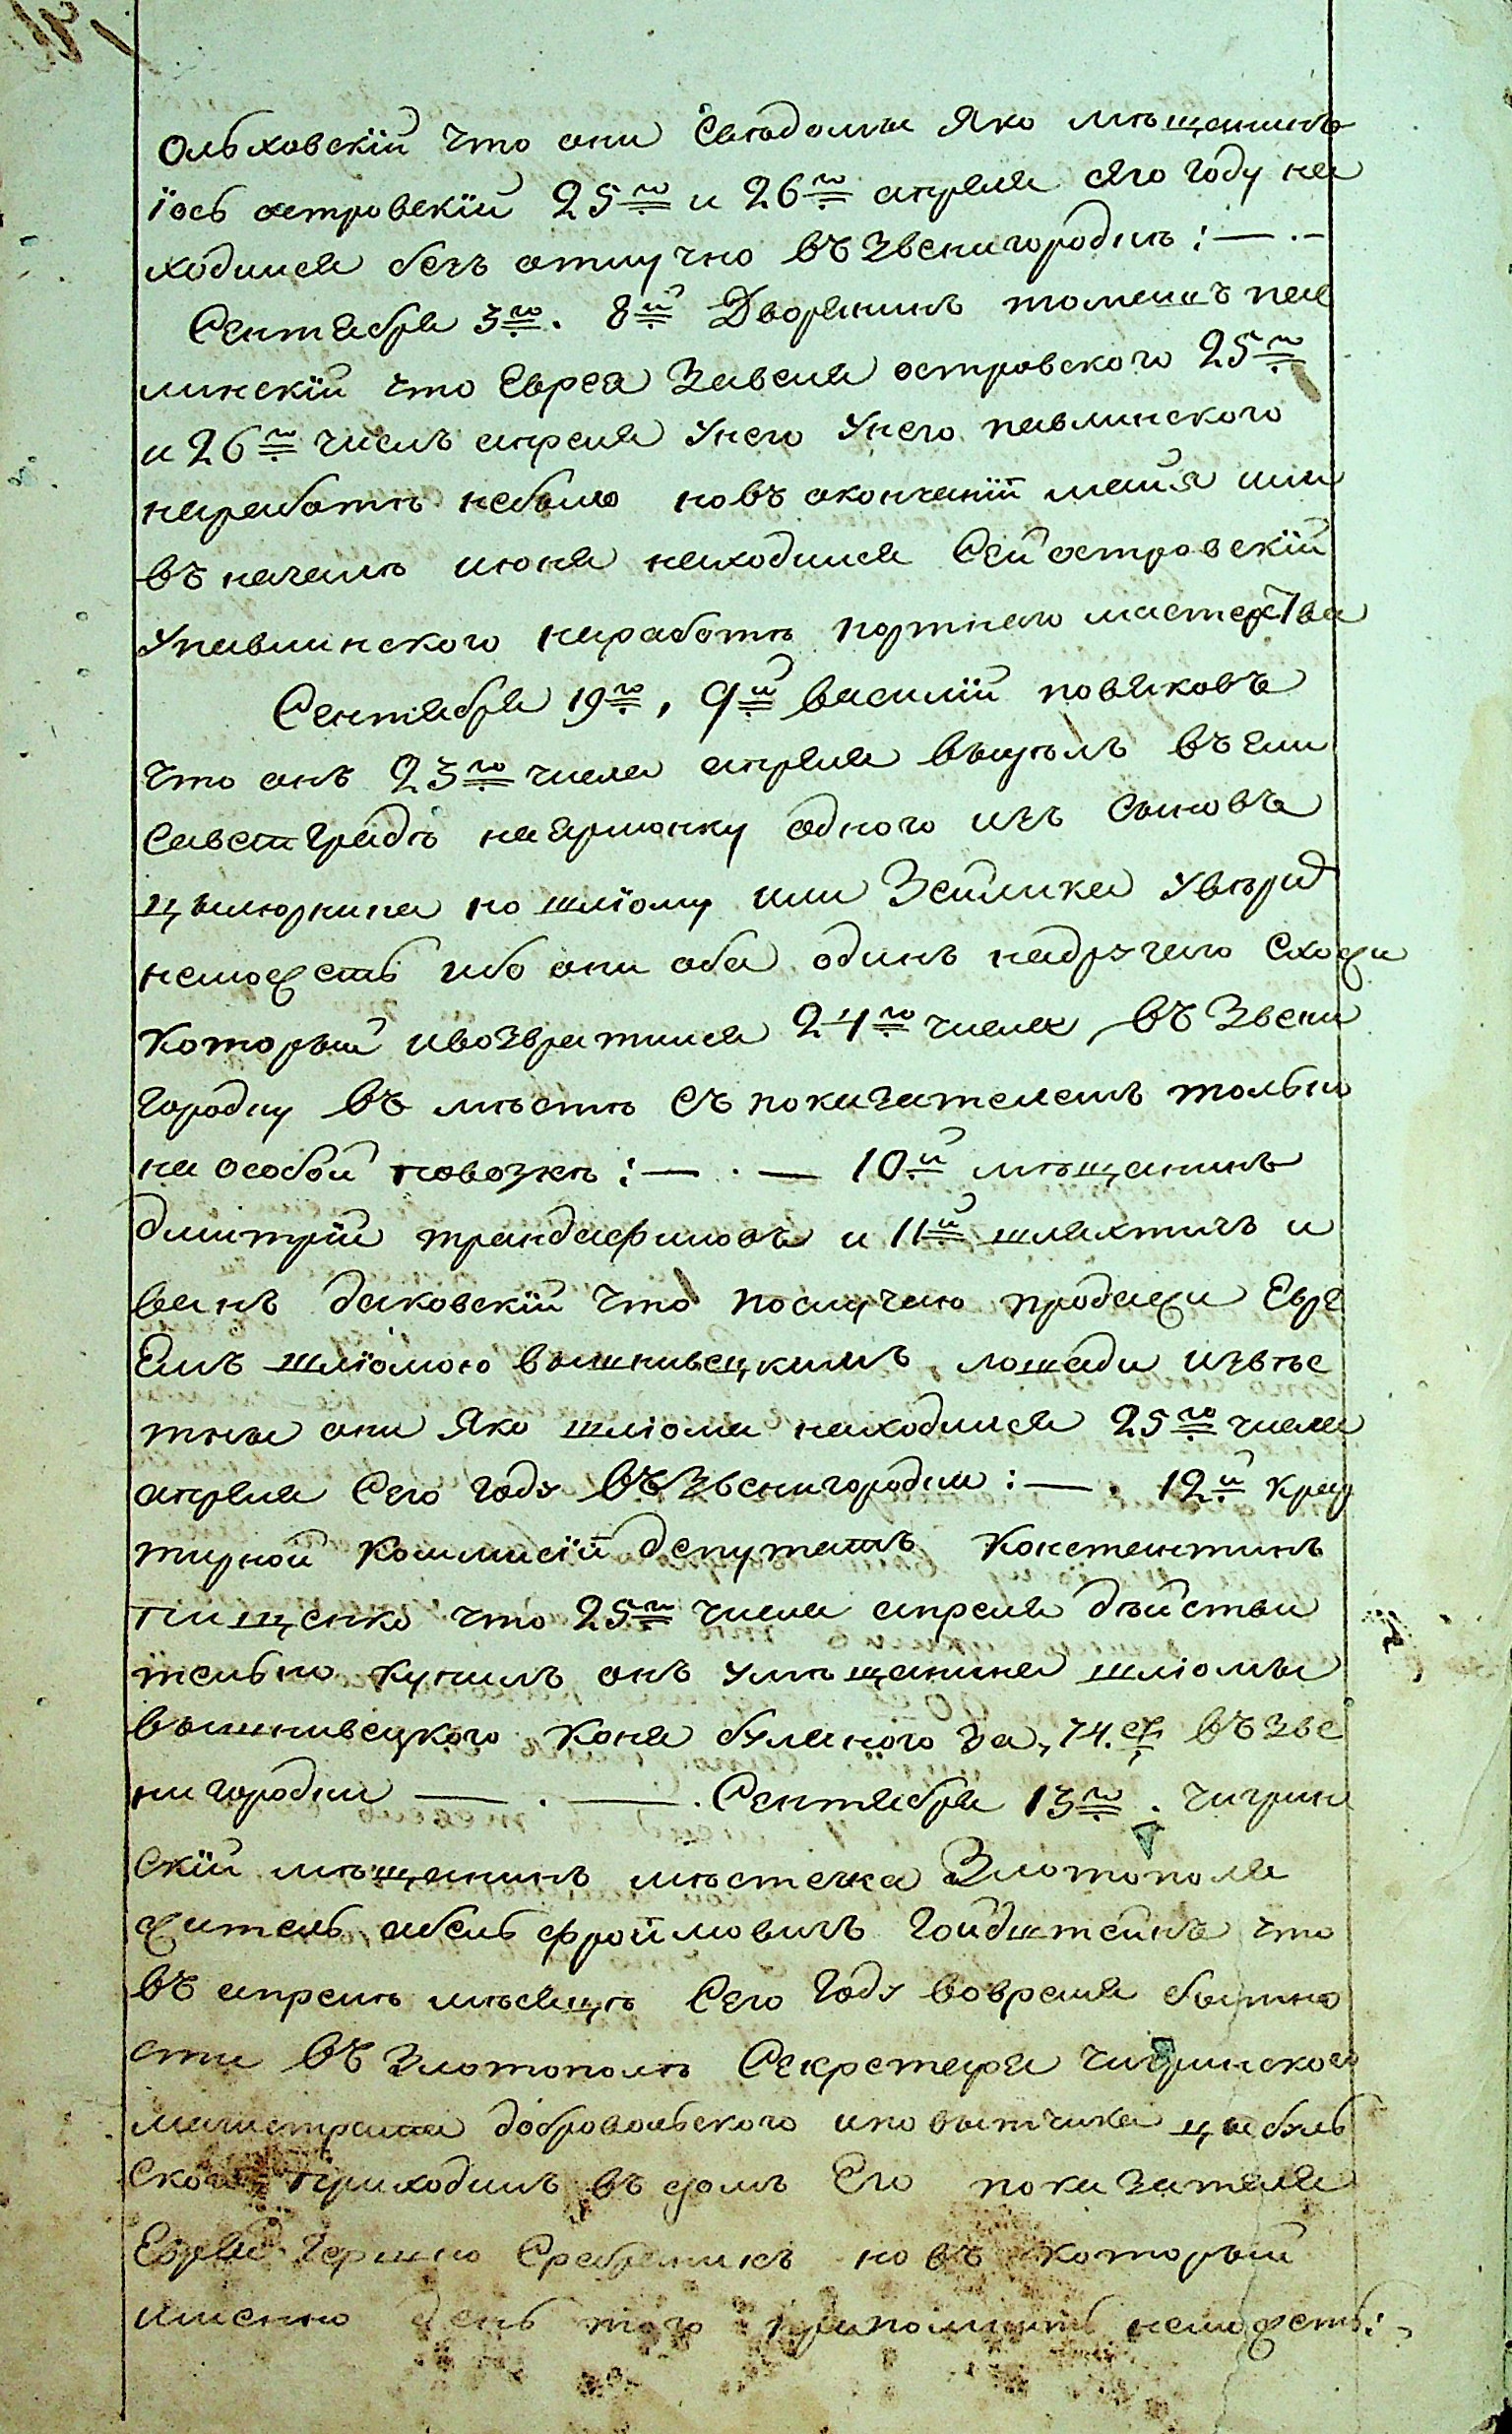 Ольховскїй что они сведомы яко мѣщанинъ
їось островскїй 25го и 26го апреля сего году на
ходился безъ отлучно въ Звенигородкѣ: — . —
Сентября 3го. 8й Дворянинъ томашъ пав
линскїй что Еврея Завеля островского 25го
и 26го числъ апреля унего унего павлинского
наработѣ небыло новъ окончанїй майя или
въ началѣ июня находился сей островскїй
упавлинского наработѣ портнаго мастерства
Сентября 19го, 9й василїй поваковъ
что онъ 23го числа апреля выделъ въ Ели
саветградѣ наярмонку одного изъ сыновъ
цылюрника но шлїому или Зейлика увѣрит
неможетъ ибо они оба одинъ надругаго схожи
который ивозвратился 24го числа въ Звени
городку въ мѣстѣ съ показателемъ только
на особой повозкѣ: — . — 10й мѣщанинъ
дмитрїй трандафиловъ и 11й шляхтичъ и
ванъ даковскїй что послучаю продажи Евре
емъ шлїомою вышнивецкимъ, лошади извѣс
тны они яко шлїома находился 25го числа
апреля сего году въ Звенигородки: — . 12й квар
тирной коммисїй депутатъ Константинъ
тищенко что 25го числа апреля дѣйстви
тельно купилъ онъ умѣщанина шлїомы
вышнивецкого коня буланого за 74. въ Зве
нигородки — . — . Сентября 13го. чигрин
скїй мѣщанинъ мѣстечка Златополя
житель абель фроймовичъ Гойдштейнъ что
въ апрелѣ мѣсяцѣ сего году вовремя бытно
сти въ Златополѣ Секретаря чигринского
магистрата добровольского иповытчика цыбуль
ского приходилъ въ домъ его показателя
Еврей Гершко Сребраникъ но въ который
именно день того припомнить неможетъ: